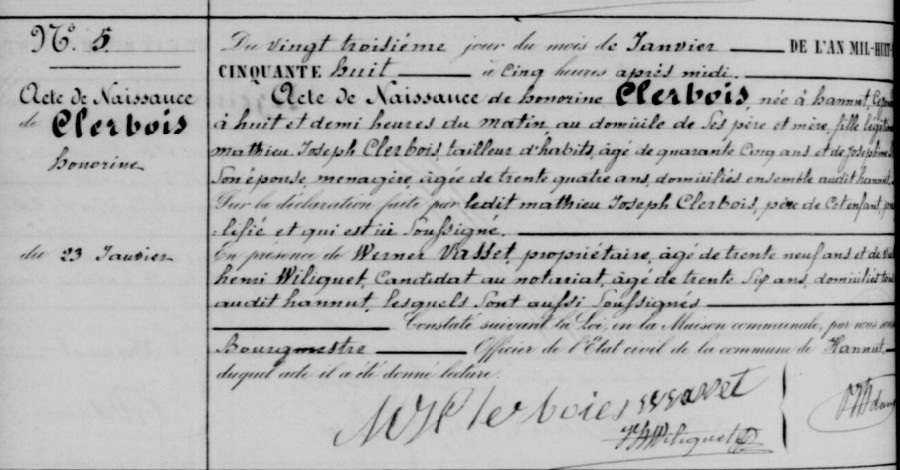 N.° 5
Acte de Naissance
de Clerbois
honorine
du 23 Janvier
Du vingt troisième jour du mois de Janvier DE L'AN MIL-HUIT-
CINQUANTE huit à Cinq heures après midi.
Acte de Naissance de honorine Clerbois, née à hannut,
à huit et demi heures du matin au domicile de Ses père et mère, fille légitime
mathieu Joseph Clerbois, tailleur d'habits, âgé de quarante Cinq ans et de Josephine
Son épouse, menagère, âgée de trente quatre ans, domiciliés ensemble audit hannut,
Sur la déclaration faite par ledit mathieu Joseph Clerbois, père de Cet enfant,
lifié et qui est ici Soussigné.
En présence de Werner Vasset, propriétaire, âgé de trente neuf ans et de
henri Wiliquet, Candidat au notariat, âgé de trente Six ans, domiciliés
audit hannut, lesquels Sont aussi Soussignés
Constaté suivant la Loi, en la Maison communale, par nous
Bourgmestre Officier de l'Etat civil de la commune de Hannut,
duquel acte il a été donné lecture.
MJ Clerbois Vasset
Wiliquet